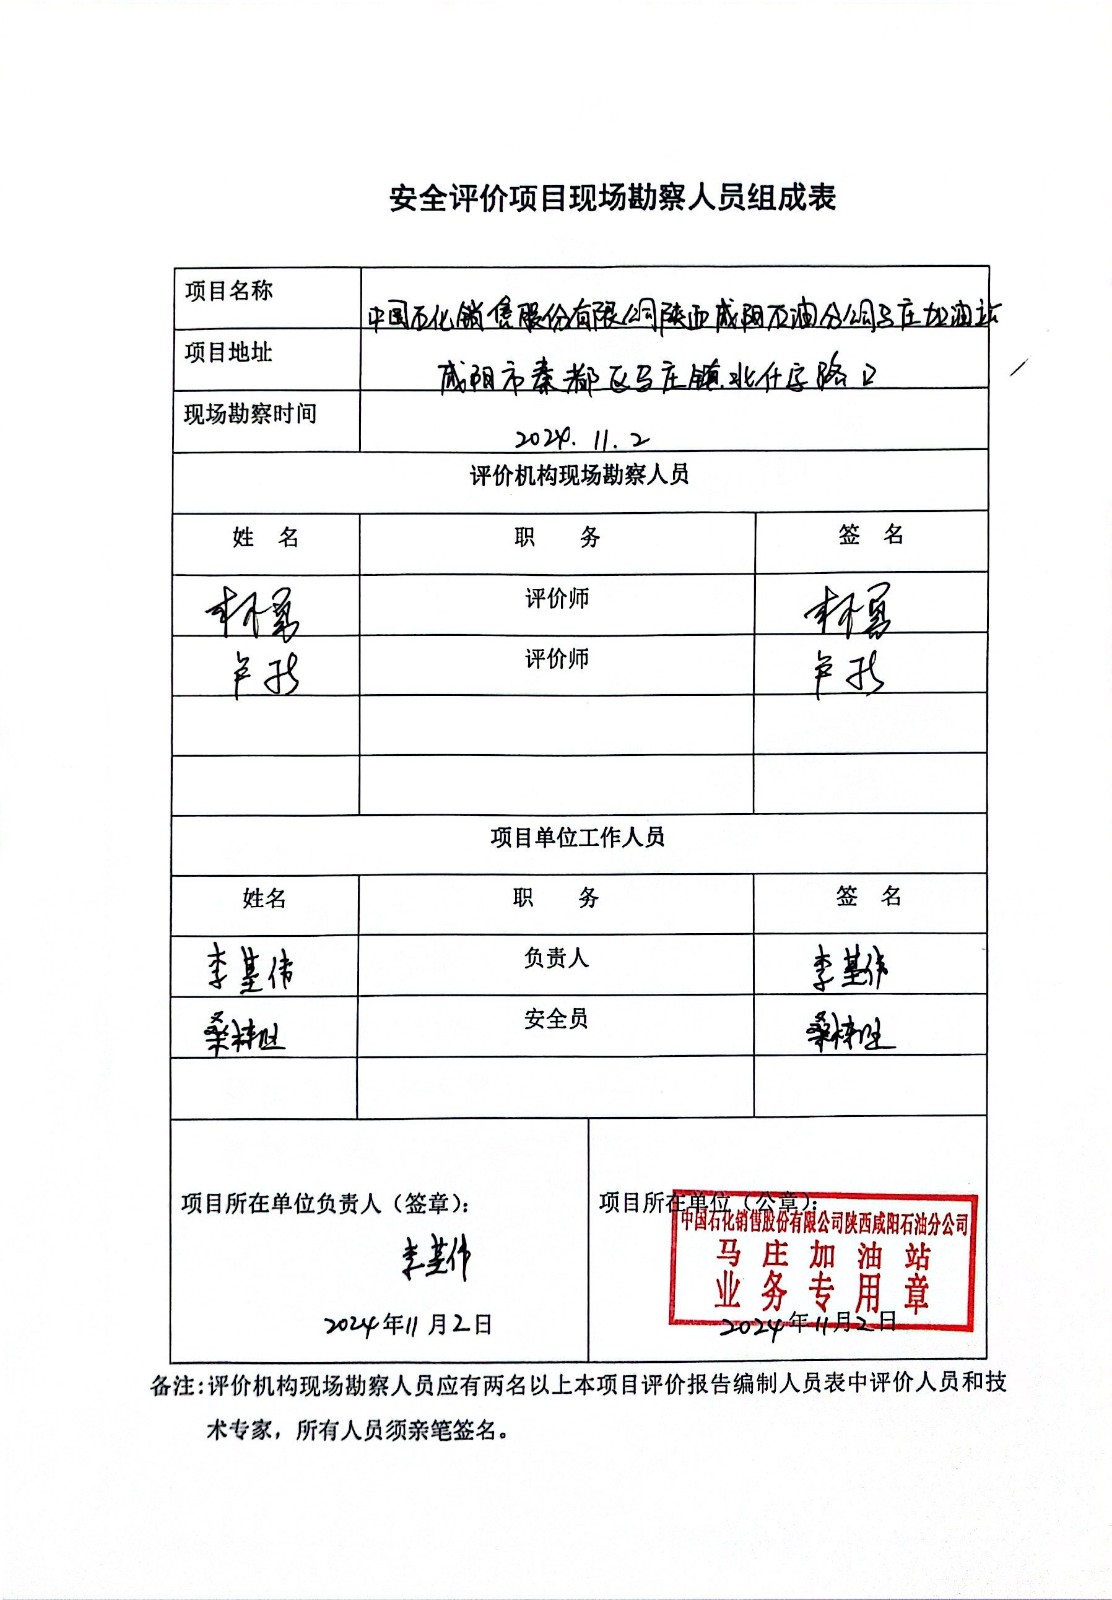 安全评价项目现场勘察人员组成表
项目名称 中国石化销售股份有限公司陕西咸阳石油分公司马庄加油站
项目地址 咸阳市秦都区马庄镇北什字路口
现场勘察时间 2024.11.2
评价机构现场勘察人员
姓 名 职 务 签 名
评价师
卢 评价师 卢
项目单位工作人员
姓名 职 务 签 名
李基伟 负责人 李基伟
桑 安全员 桑
项目所在单位负责人（签章）： 项目所在单位（公章）：
中国石化销售股份有限公司陕西咸阳石油分公司
马庄加油站
业务专用章
李基伟
2024年11月2日 2024年11月2日
备注：评价机构现场勘察人员应有两名以上本项目评价报告编制人员表中评价人员和技
术专家，所有人员须亲笔签名。